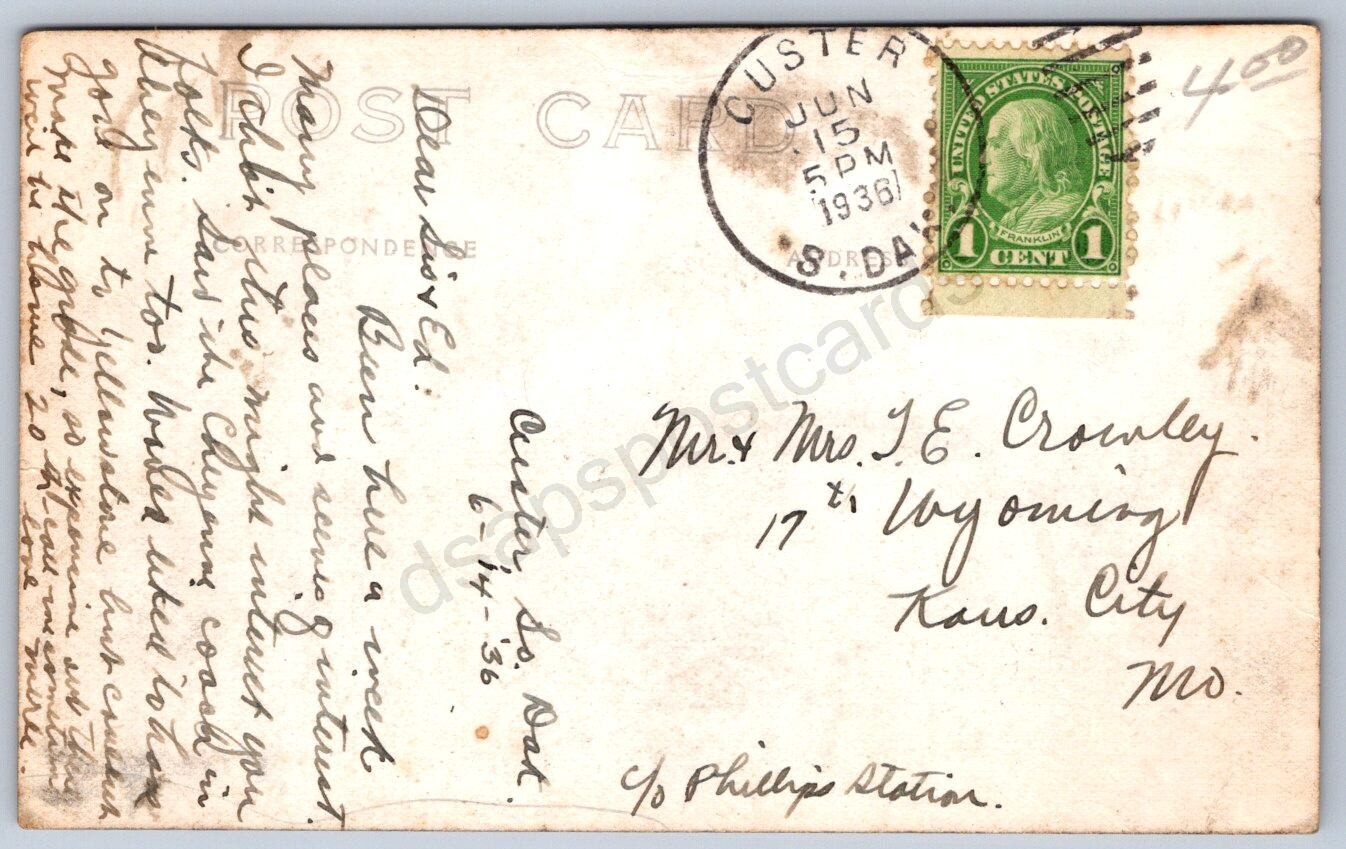 POST CARD
CORRESPONDENCE
ADDRESS
CUSTER
JUN
15
5 PM
1936
S. DAK.
UNITED STATES POSTAGE
FRANKLIN
1 CENT 1
4.00
Custer, So. Dak.
6-14-'36
Dear Sis & Ed:
Been here a week
Many places and scenes of interest.
I think this might interest you
folks. Saw the Cheyenne coach in
Cheyenne too. Would liked to have
gone on to Yellowstone but couldn't
make the grade, so expensive out this
will be home 20th - call me sometime
Love
Mr. & Mrs. T. E. Crowley.
17th Wyoming
Kans. City
Mo.
c/o Phillips Station.
dsapspostcards